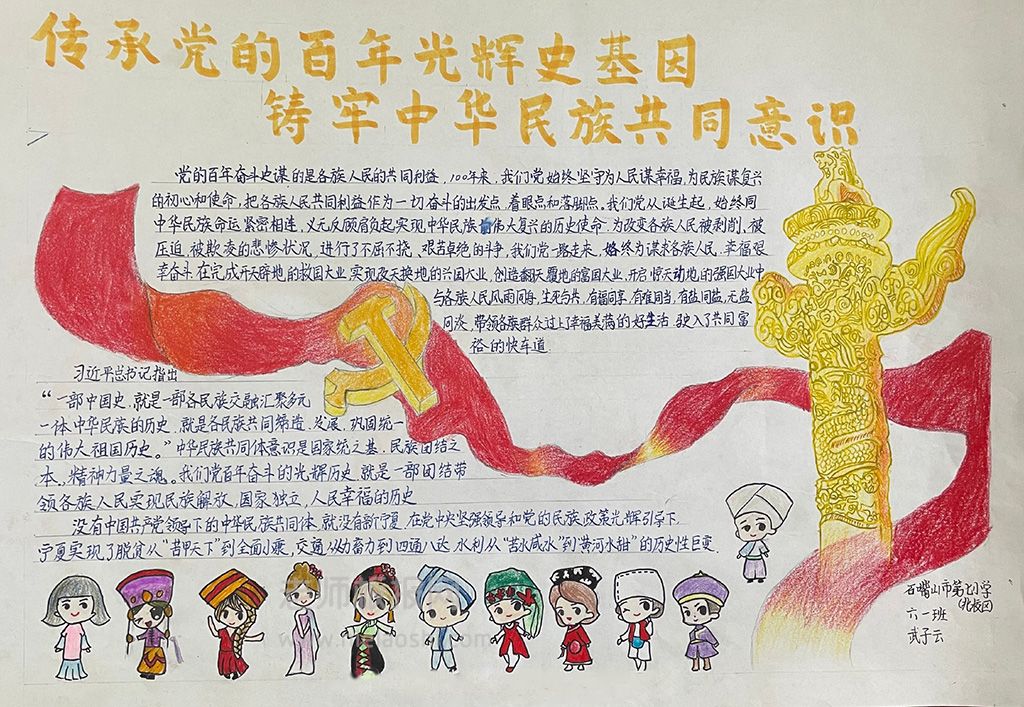 传承党的百年光辉史基因
铸牢中华民族共同意识
党的百年奋斗史谋的是各族人民的共同利益,100年来,我们党始终坚守为人民谋幸福,为民族谋复兴
的初心和使命,把各族人民共同利益作为一切奋斗的出发点,着眼点和落脚点,我们党从诞生起,始终同
中华民族命运紧密相连,义无反顾肩负起实现中华民族的伟大复兴的历史使命,为改变各族人民被剥削,被
压迫,被欺凌的悲惨状况,进行了不屈不挠,艰苦卓绝的斗争,我们党一路走来,始终为谋求各族人民,幸福艰
幸奋斗在完成开天辟地的救国大业,实现改天换地的兴国大业,创造翻天覆地的富国大业,开启惊天动地的强国大业中
与各族人民风雨同舟,生死与共,有福同享,有难同当,有盐同盐,无盐
同淡,带领各族群众过上幸福美满的好生活,驶入了共同富
裕的快车道
习近平总书记指出
“一部中国史,就是一部各民族交融汇聚多元
一体中华民族的历史,就是各民族共同缔造,发展,巩固统一
的伟大祖国历史。”中华民族共同体意识是国家统之基,民族团结之
本,精神力量之魂。我们党百年奋斗的光辉历史,就是一部团结带
领各族人民实现民族解放,国家独立,人民幸福的历史
没有中国共产党领导下的中华民族共同体,就没有新宁夏,在党中央坚强领导和党的民族政策光辉引导下,
宁夏实现了脱贫从“苦甲天下”到全面小康,交通从奋力到四通八达,水利从“苦水咸水”到“黄河水甜”的历史性巨变.
石嘴山市第七小学
(北校区)
六一班
武子云